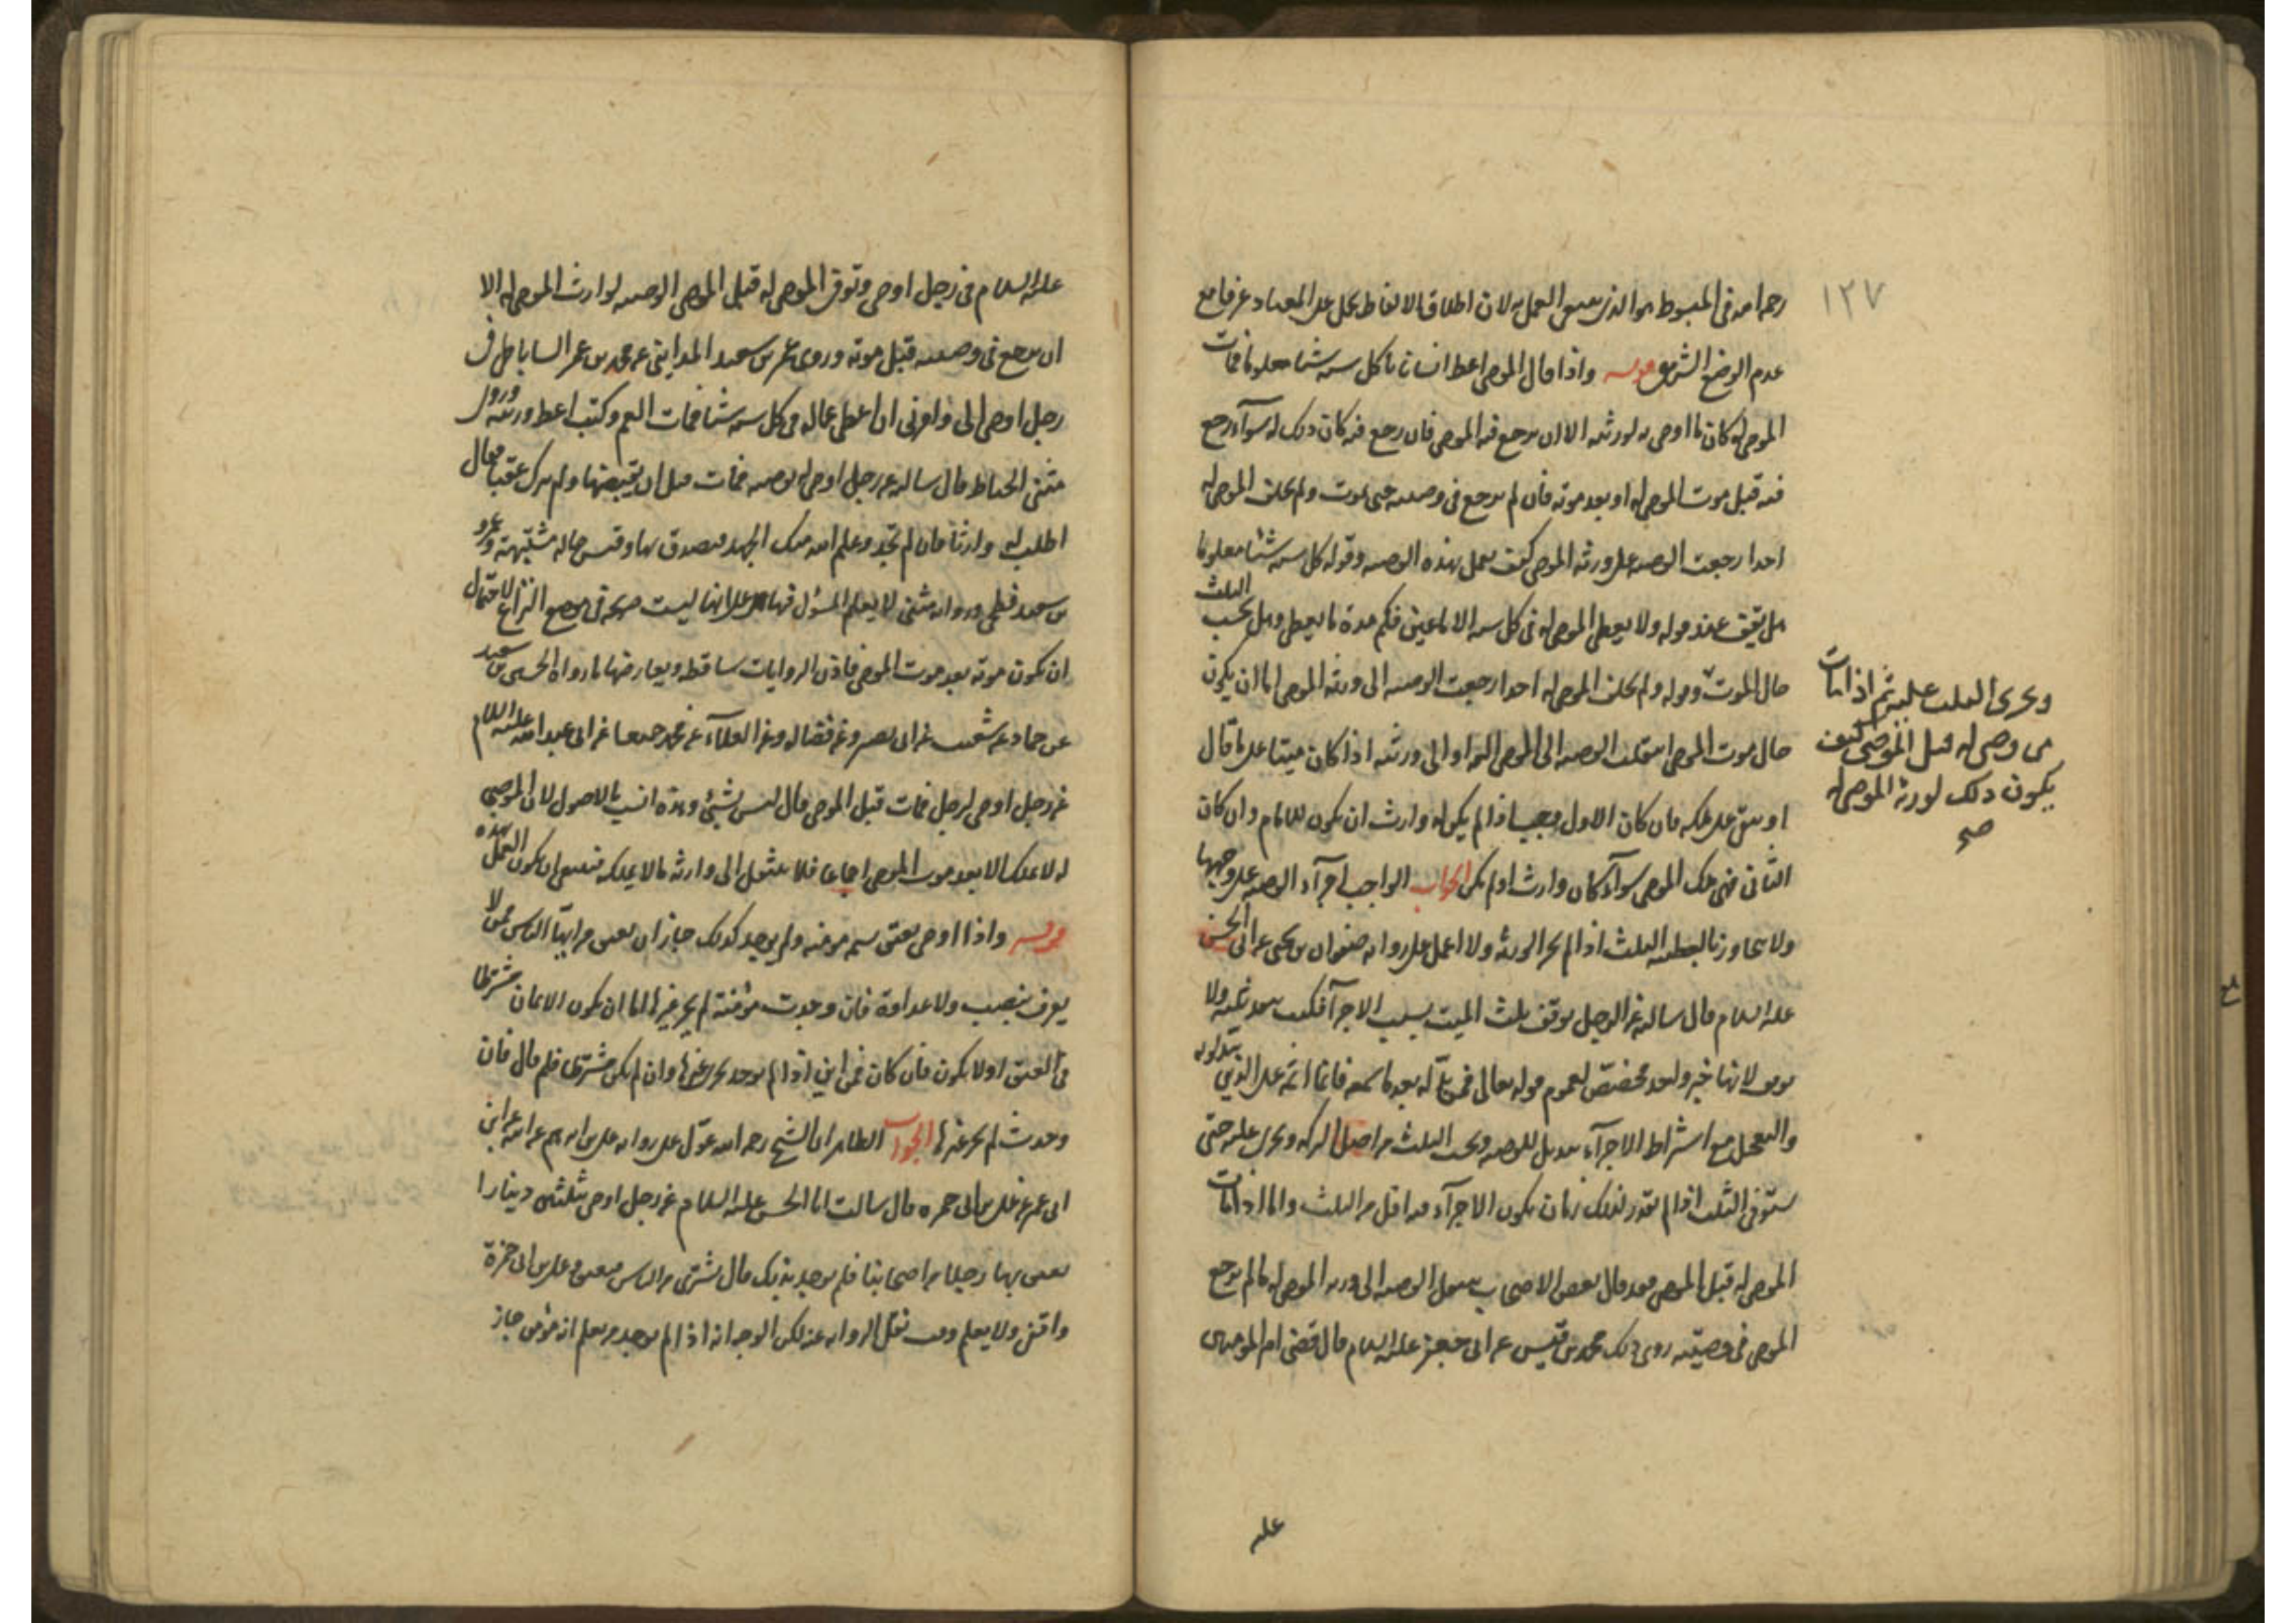 ١٢٧
رحمه الله في المبسوط هو الذي ينبغي العمل به لان اطلاق الالفاظ يحمل على المعتاد عرفا مع
عدم الوضع الشرعي قوله واذا قال الموصي اعط انسانا كل سنة شيئا معلوما فمات
الموصى له كان ما اوصى به لورثته الا ان يرجع فيه الموصي فان رجع فيه كان ذلك له سواء رجع
فيه قبل موت الموصى له او بعد موته فان لم يرجع في وصيته حتى يموت ولم يخلف الموصى له
احدا رجعت الوصية على ورثة الموصي كيف يعمل بهذه الوصية وقوله كل سنة شيئا معلوما
هل يقف عند قوله ولا يعطى الموصى له في كل سنة الا ما عين فكم مدة ما يعطى وهل يحسب الثلث
حال الموت وقوله ولم يخلف الموصى له احدا رجعت الوصية الى ورثة الموصي اما ان يكون
حال موت الموصي انتقلت الوصية الى الموصى اليه او الى ورثته اذا كان ميتا على ما قال
او يبقى على ملكه فان كان الاول فيجب اذا لم يكن له وارث ان يكون للامام وان كان
الثاني فهي ملك الموصي سواء كان وارث او لم يكن الجواب الواجب اجراء الوصية على وجهها
ولا يتجاوز بالعطية الثلث اذا لم يجز الورثة ولا اعمل على رواية صفوان بن يحيى عن ابي الحسن
عليه السلام قال سالته عن الرجل يوقف ثلث الميت بسبب الاجراء فكتب ينفذ ثلثه ولا
يوقف لانها خبر واحد مخصص لعموم قوله تعالى فمن بدله بعد ما سمعه فانما اثمه على الذين يبدلونه
والتعجيل مع اشتراط الاجراء تبديل للوصية ويحسب الثلث من اصل التركة ويجري عليه حتى
يستوفي الثلث اذا لم يقدر لذلك زمان يكون الاجراء فيه اقل من الثلث واما اذا مات
الموصى له قبل الموصي فقد قال بعض الاصحاب ينتقل الوصية الى ورثة الموصى له ما لم يرجع
الموصي في وصيته روى ذلك محمد بن قيس عن ابي جعفر عليه السلام قال قضى امير المومنين
عليه
ويجري الثلث عليه ثم اذا مات
من وصي له قبل الموصي كيف
يكون ذلك لورثة الموصى له
صح
عليه السلام في رجل اوصى وتوفي الموصى له قبل الموصي الوصية لوارث الموصى له الا
ان يرجع في وصيته قبل موته وروى عمر بن سعيد المدايني عن محمد بن عمر الساباطي في
رجل اوصى الى وامرني ان اعطي عما له في كل سنة شيئا فمات العم وكتب اعط ورثته وروى
مثنى الحناط قال سالته عن رجل اوصى له بوصية فمات قبل ان يقبضها ولم يترك عقبا فقال
اطلب له وارثا فان لم تجد وعلم الله منك الجهد فتصدق بها وقيس حاله مشتبهة وعمرو
بن سعيد فطحي ورواية مثنى لا يعلم المسؤل فيها على انها ليست صريحة في موضع النزاع لاحتمال
ان يكون موته بعد موت الموصي فاذن الروايات ساقطة ويعارضها ما رواه الحسين بن سعيد
عن حماد عن شعيب عن ابي بصير وعن فضالة وعن العلاء عن محمد جميعا عن ابي عبد الله عليه السلام
عن رجل اوصى لرجل فمات قبل الموصي قال ليس بشيئ وهذه انسب بالاصول لان الموصى
له لا يملك الا بعد موت الموصي اجماعا فلا ينتقل الى وارثه ما لا يملكه فينبغي ان يكون العمل بهذه
قوله واذا اوصى بعتق نسمة مومنة ولم يوجد كذلك جاز ان يعتق من ابناء الناس ممن لا
يعرف بنصب ولا عداوة فان وجدت مؤمنة لم يجز غيرها اما ان يكون الايمان مشرطا
في العتق او لا يكون فان كان فمن اين اذا لم يوجد يجزي غيرها وان لم يكن مشترطا فلم قال فان
وجدت لم يجز غيرها الجواب الظاهر ان الشيخ رحمه الله عول على رواية علي بن ابراهيم عن ابيه عن ابن
ابي عمير عن علي بن ابي حمزه قال سالت ابا الحسن عليه السلام عن رجل اوصى بثلثين دينارا
يعتق بها رجل من اصحابنا فلم يوجد بذلك قال يشترى من الناس فيعتق وعلي بن ابي حمزة
واقفي ولا يعلم وقت نقل الرواية عنه لكن الوجه انه اذا لم يوجد من يعلم انه مؤمن جاز